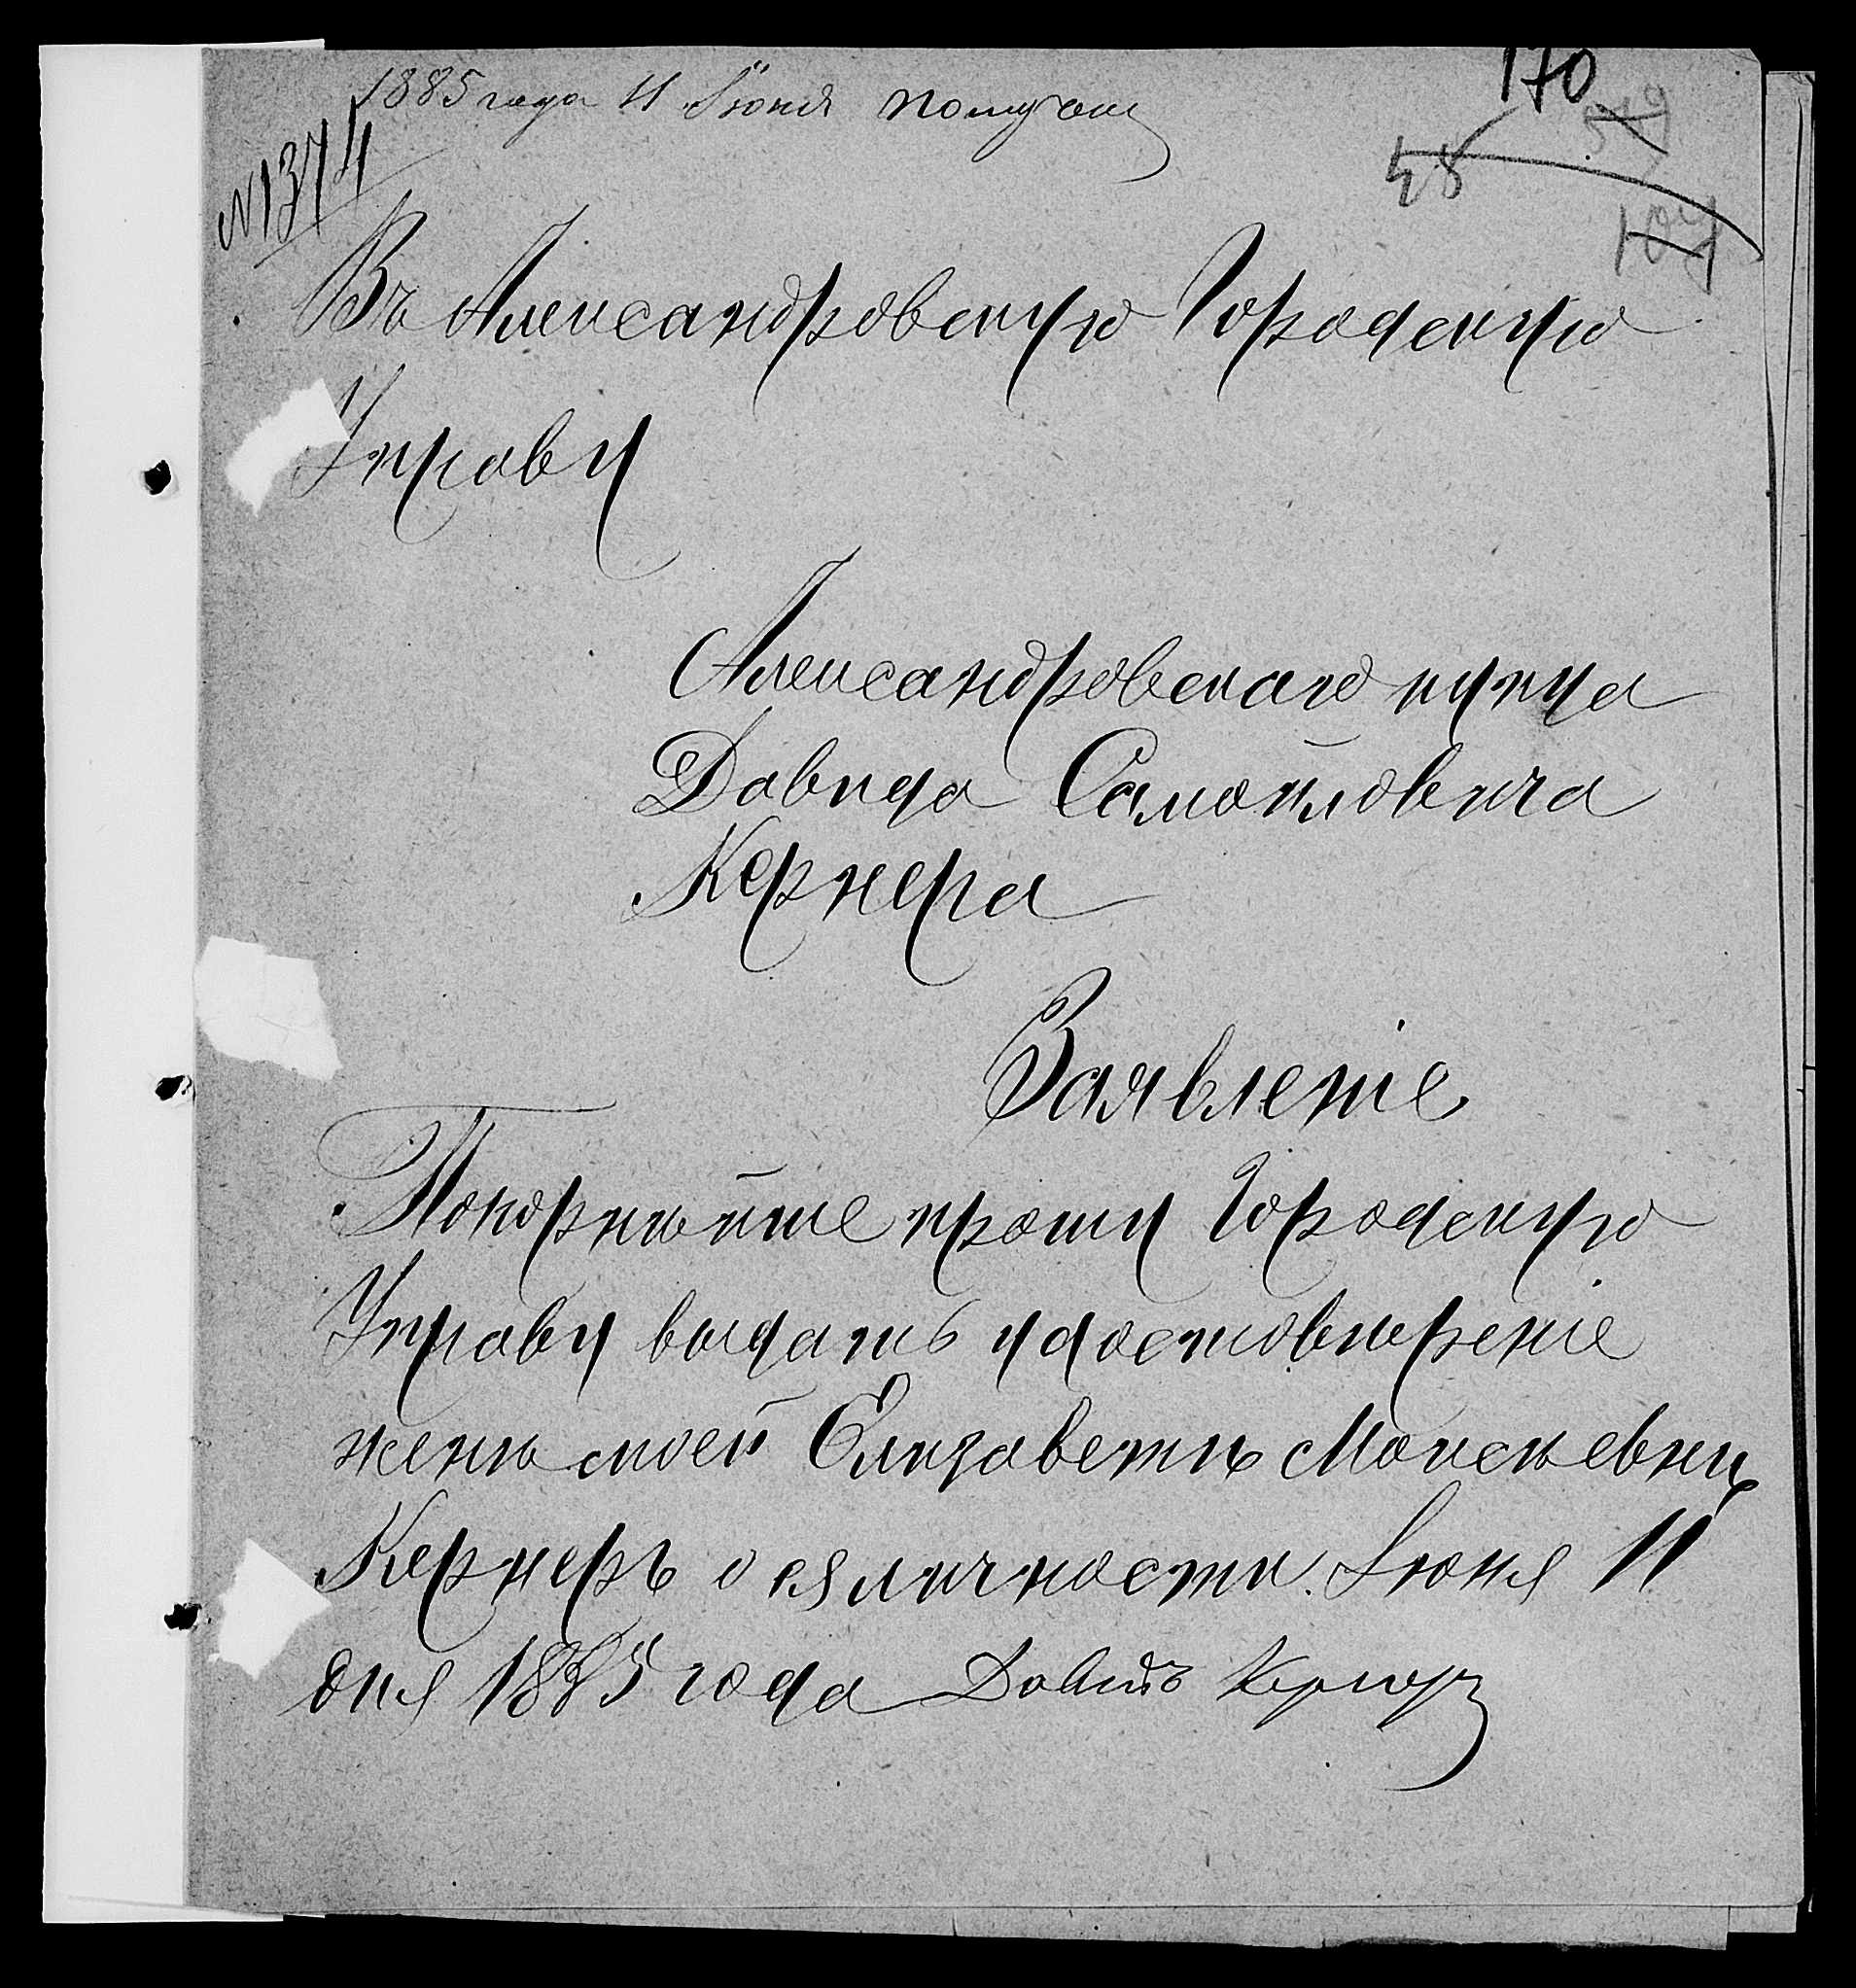 170
1885 года 11 Іюня получен
№ 1374
48
104
Въ Александровскую Городскую
Управу
Александровскаго купца
Давида Самойловича
Кернера
Заявленіе
Покорнѣйше прошу Городскую
Управу выдать удостовѣреніе
женѣ моей Елизаветѣ Моисѣевнѣ
Кернеръ о ея личности. Іюня 11
дня 1885 года Давидъ Кернеръ